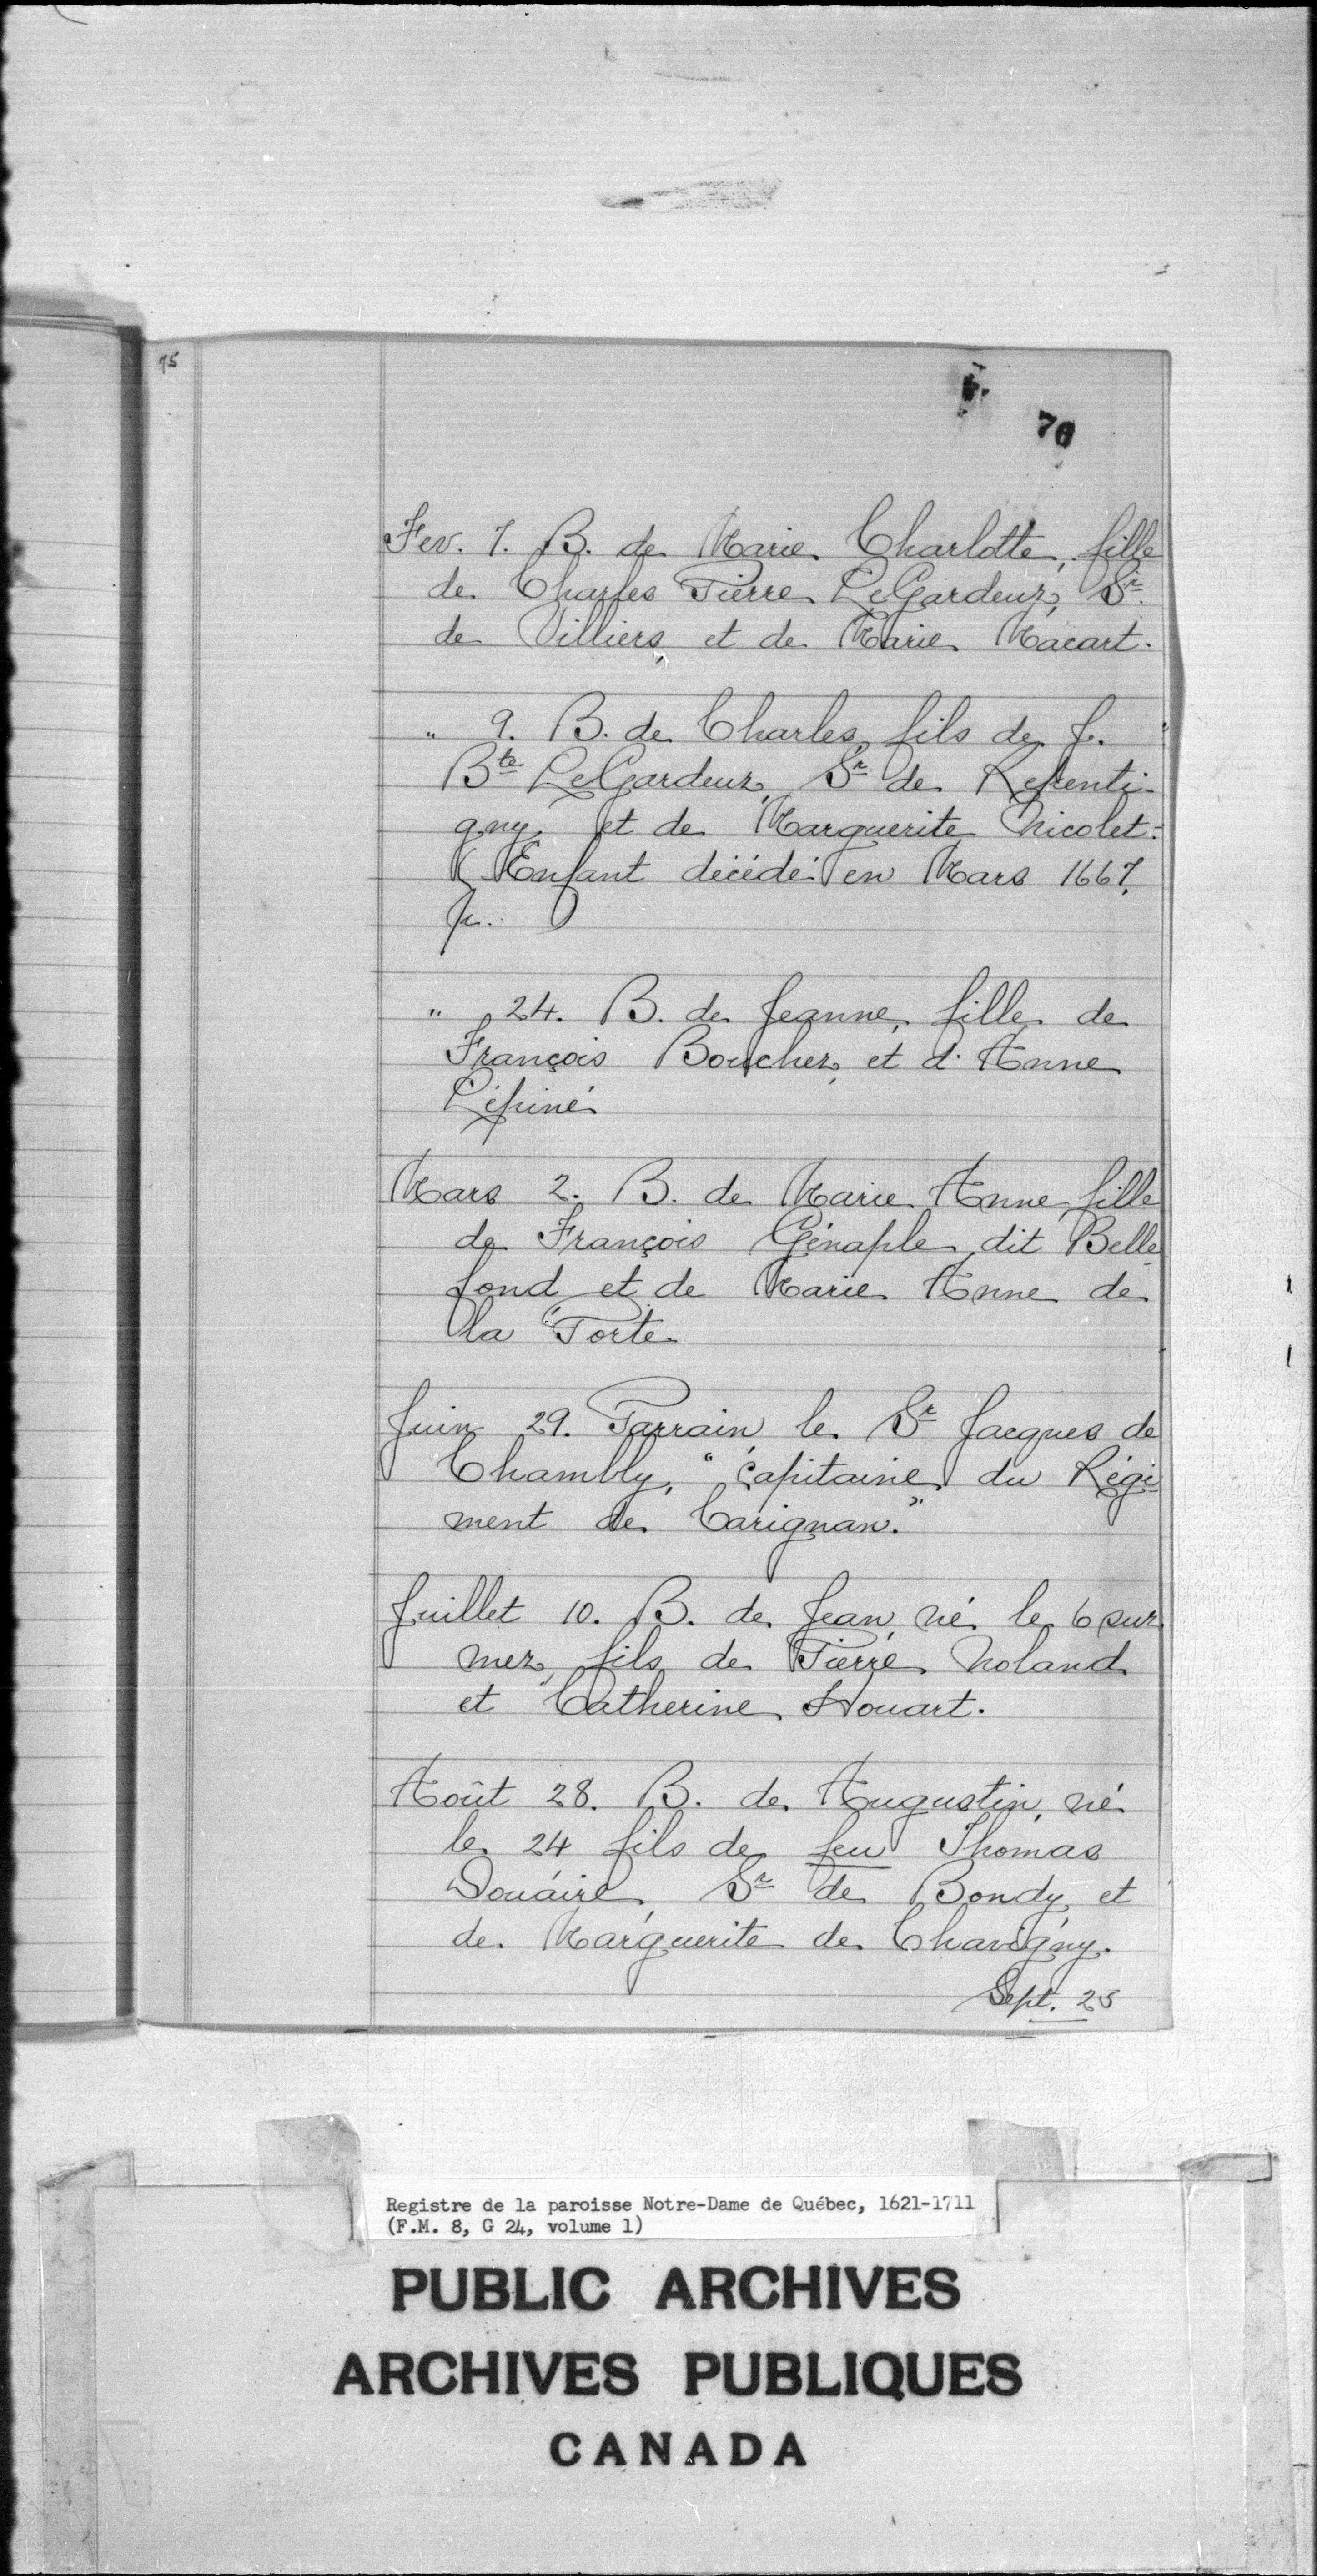 75
76
Fev. 7. B. de Marie Charlotte, fille
de Charles Pierre LeGardeur, Sr.
de Villiers, et de Marie Macart.
" 9. B. de Charles, fils de J.
Bte LeGardeur, Sr de Repenti-
gny, et de Marguerite Nicolet.
(Enfant décédé en Mars 1667.
" 24. B. de Jeanne, fille de
François Boucher, et d'Anne
Lépine
Mars 2. B. de Marie Anne, fille
de François Génaple, dit Belle
fond et de Marie Anne de
la Porte
Juin 29. Parrain, le Sr Jacques de
Chambly, "capitaine du Régi-
ment de Carignan."
Juillet 10. B. de Jean, né le 6 sur
mer, fils de Pierre Noland
et Catherine Houart.
Août 28. B. de Augustin, né
le 24 fils de feu Thomas
Douaire, Sr de Bondy et
de Marguerite de Chavigny.
Sept. 25
Registre de la paroisse Notre-Dame de Québec, 1621-1711
(F.M. 8, G 24, volume 1)
PUBLIC ARCHIVES
ARCHIVES PUBLIQUES
CANADA